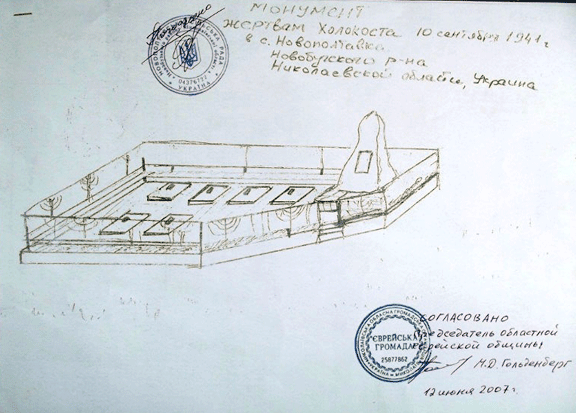 МОНУМЕНТ
жертвам Холокоста 10 сентября 1941 г
в с. Новополтавка
Новобугского р-на
Николаевской области, Украина
04376777
УКРАЇНА
СОГЛАСОВАНО
Председатель областной
еврейской общины
М.Д. Гольденберг
12 июня 2007 г.
ЄВРЕЙСЬКА
ГРОМАДА
25877862